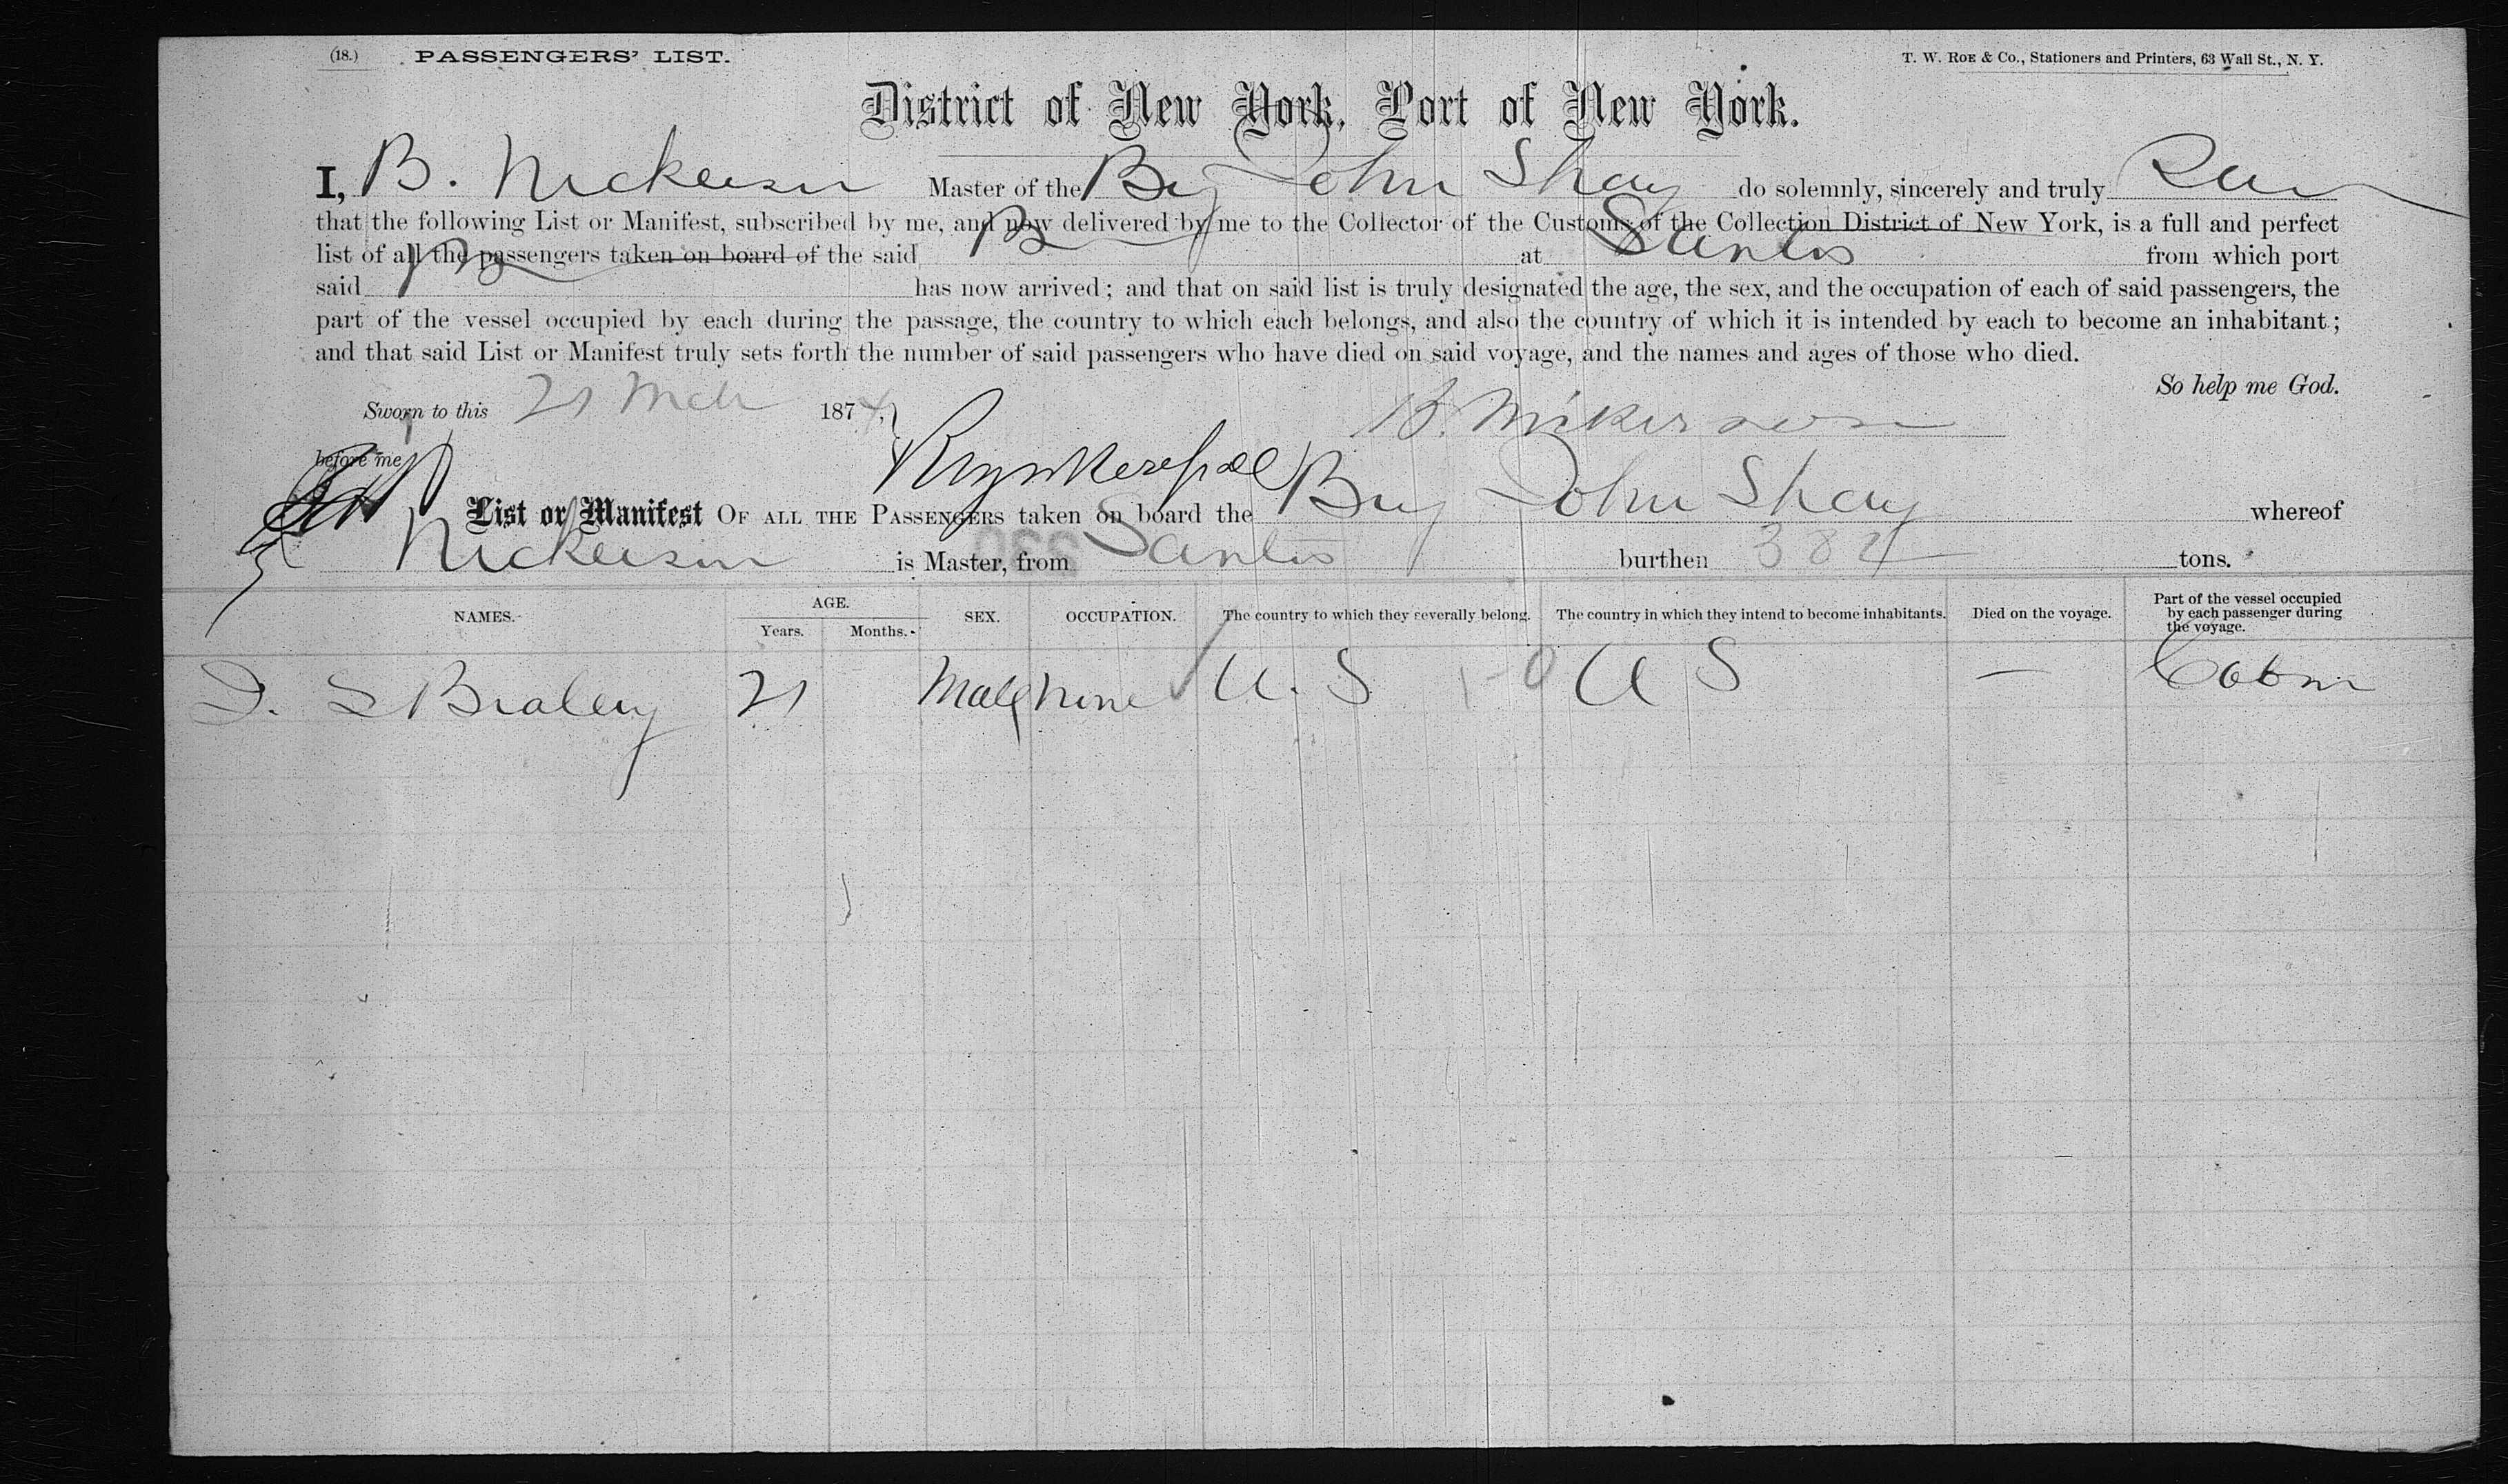 (18.) PASSENGERS' LIST. T. W. ROE & Co., Stationers and Printers, 63 Wall St., N. Y.
District of New York, Port of New York.
I, B. Nickerson Master of the Brig John Shay do solemnly, sincerely and truly
that the following List or Manifest, subscribed by me, and now delivered by me to the Collector of the Customs of the Collection District of New York, is a full and perfect
list of all the passengers taken on board of the said B at Santos from which port
said Brig has now arrived; and that on said list is truly designated the age, the sex, and the occupation of each of said passengers, the
part of the vessel occupied by each during the passage, the country to which each belongs, and also the country of which it is intended by each to become an inhabitant;
and that said List or Manifest truly sets forth the number of said passengers who have died on said voyage, and the names and ages of those who died.
So help me God.
Sworn to this 21 Mch 1874, B. Nickerson
before me
List or Manifest OF ALL THE PASSENGERS taken on board the Brig John Shay whereof
Nickerson is Master, from Santos burthen 382 tons.
NAMES. AGE. Years. Months. SEX. OCCUPATION. The country to which they severally belong. The country in which they intend to become inhabitants. Died on the voyage. Part of the vessel occupied by each passenger during the voyage.
L Braley 21 Male None U. S U S — Cabin